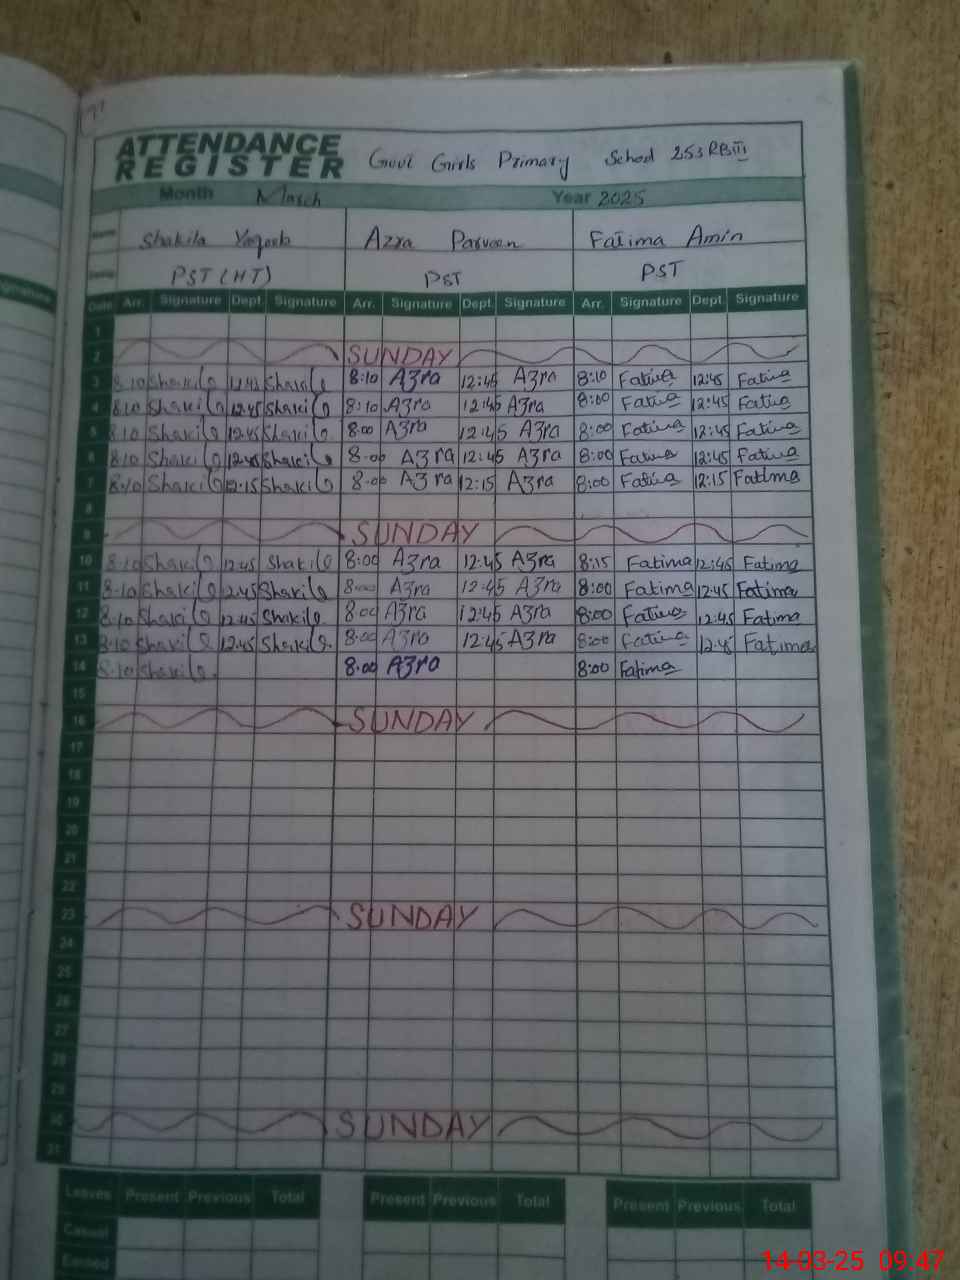 ATTENDANCE
REGISTER Govt Girls Primary School 253 RBIII
Month March Year 2025
Name Shakila Yaqoob Azra Parveen Fatima Amin
PST (HT) PST PST
Date Arr. Signature Dept. Signature Arr. Signature Dept. Signature Arr. Signature Dept. Signature
1
2 SUNDAY
3 8:10 Shakila 12:45 Shakila 8:10 A3ra 12:45 A3ra 8:10 Fatima 12:45 Fatima
4 8:10 Shakila 12:45 Shakila 8:10 A3ra 12:45 A3ra 8:00 Fatima 12:45 Fatima
5 8:10 Shakila 12:45 Shakila 8:00 A3ra 12:45 A3ra 8:00 Fatima 12:45 Fatima
6 8:10 Shakila 12:45 Shakila 8:00 A3ra 12:45 A3ra 8:00 Fatima 12:45 Fatima
7 8:10 Shakila 12:15 Shakila 8:00 A3ra 12:15 A3ra 8:00 Fatima 12:15 Fatima
8
9 SUNDAY
10 8:10 Shakila 12:45 Shakila 8:00 A3ra 12:45 A3ra 8:15 Fatima 12:45 Fatima
11 8:10 Shakila 12:45 Shakila 8:00 A3ra 12:45 A3ra 8:00 Fatima 12:45 Fatima
12 8:10 Shakila 12:45 Shakila 8:00 A3ra 12:45 A3ra 8:00 Fatima 12:45 Fatima
13 8:10 Shakila 12:45 Shakila 8:00 A3ra 12:45 A3ra 8:00 Fatima 12:45 Fatima
14 8:10 Shakila 8:00 A3ra 8:00 Fatima
15
16 SUNDAY
17
18
19
20
21
22
23 SUNDAY
24
25
26
27
28
29
30 SUNDAY
31
Leaves Present Previous Total Present Previous Total Present Previous Total
Casual
Earned
14-03-25 09:47